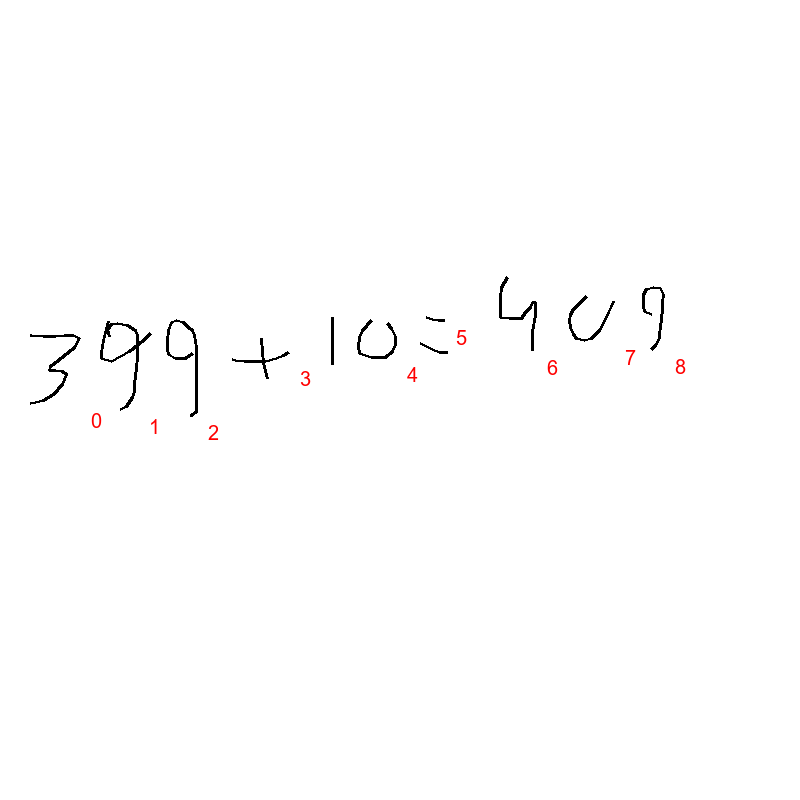 399+10=409
0 1 2 3 4 5 6 7 8